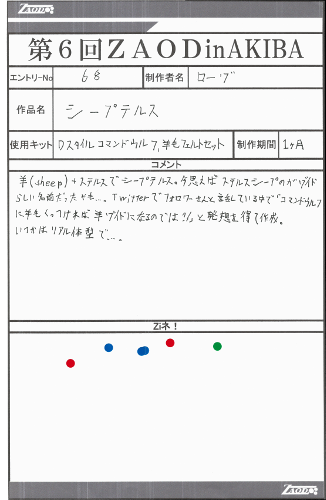 ZAOD
第6回ZAODinAKIBA
エントリーNo 68 制作者名 ローブ
作品名 シープテルス
使用キット Dスタイルコマンドウルフ,羊毛フェルトセット 制作期間 1ヶ月
コメント
羊(sheep)+ステルスでシープテルス。今思えばステルスシープのがゾイド
らしい名前だったかも…。Twitterでフォロワーさんと会話している中で「コマンドウルフ
に羊毛くっつければ羊ゾイドになるのでは!?」と発想を得て作成。
いつかはリアル体型で…。
Ziネ!
ZAOD